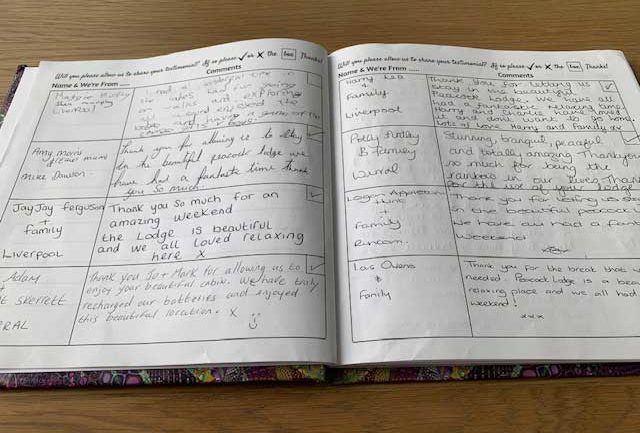 Will you please allow us to share your testimonial? If so please ✓ or X the box Thanks!
Name & We're From ..... Comments
Liverpool
Amy Morris
Mike Dawson.
Thank you for allowing us to stay
in the beautiful peacock lodge we
have had a fantastic time thank
you so much
JayJay ferguson
+
family
Liverpool
Thank you so much for an
amazing weekend
the Lodge is beautiful
and we all loved relaxing
here X
Adam
SKERRETT
RAL
Thank you Jo + Mark for allowing us to
enjoy your beautiful cabin. We have truly
recharged our batteries and enjoyed
this beautiful location. X
Will you please allow us to share your testimonial? If so please ✓ or X the box Thanks!
Name & We're From ..... Comments
Harry Lea
+
Family
Liverpool
Thank you for letting us
stay in this beautiful
Peacock Lodge. We have all
had a fantastic relaxing time
Harry and Charlie have loved
it and dont want to go home.
Lots of Love Harry and Family xx
Polly
& Family
Wirral
Stunning, tranquil, peaceful
and totally amazing. Thankyou
so much for being the
rainbow in our lives. Thank
for the use of your lodge
Logan
+
Family
Runcorn.
Thank you for letting us stay
in the beautiful peacock
We have all had a fant
weekend
Las Owens
&
Family
Thank you for the break that
needed. Peacock Lodge is a beau
relaxing place and we all had
weekend!
xxx